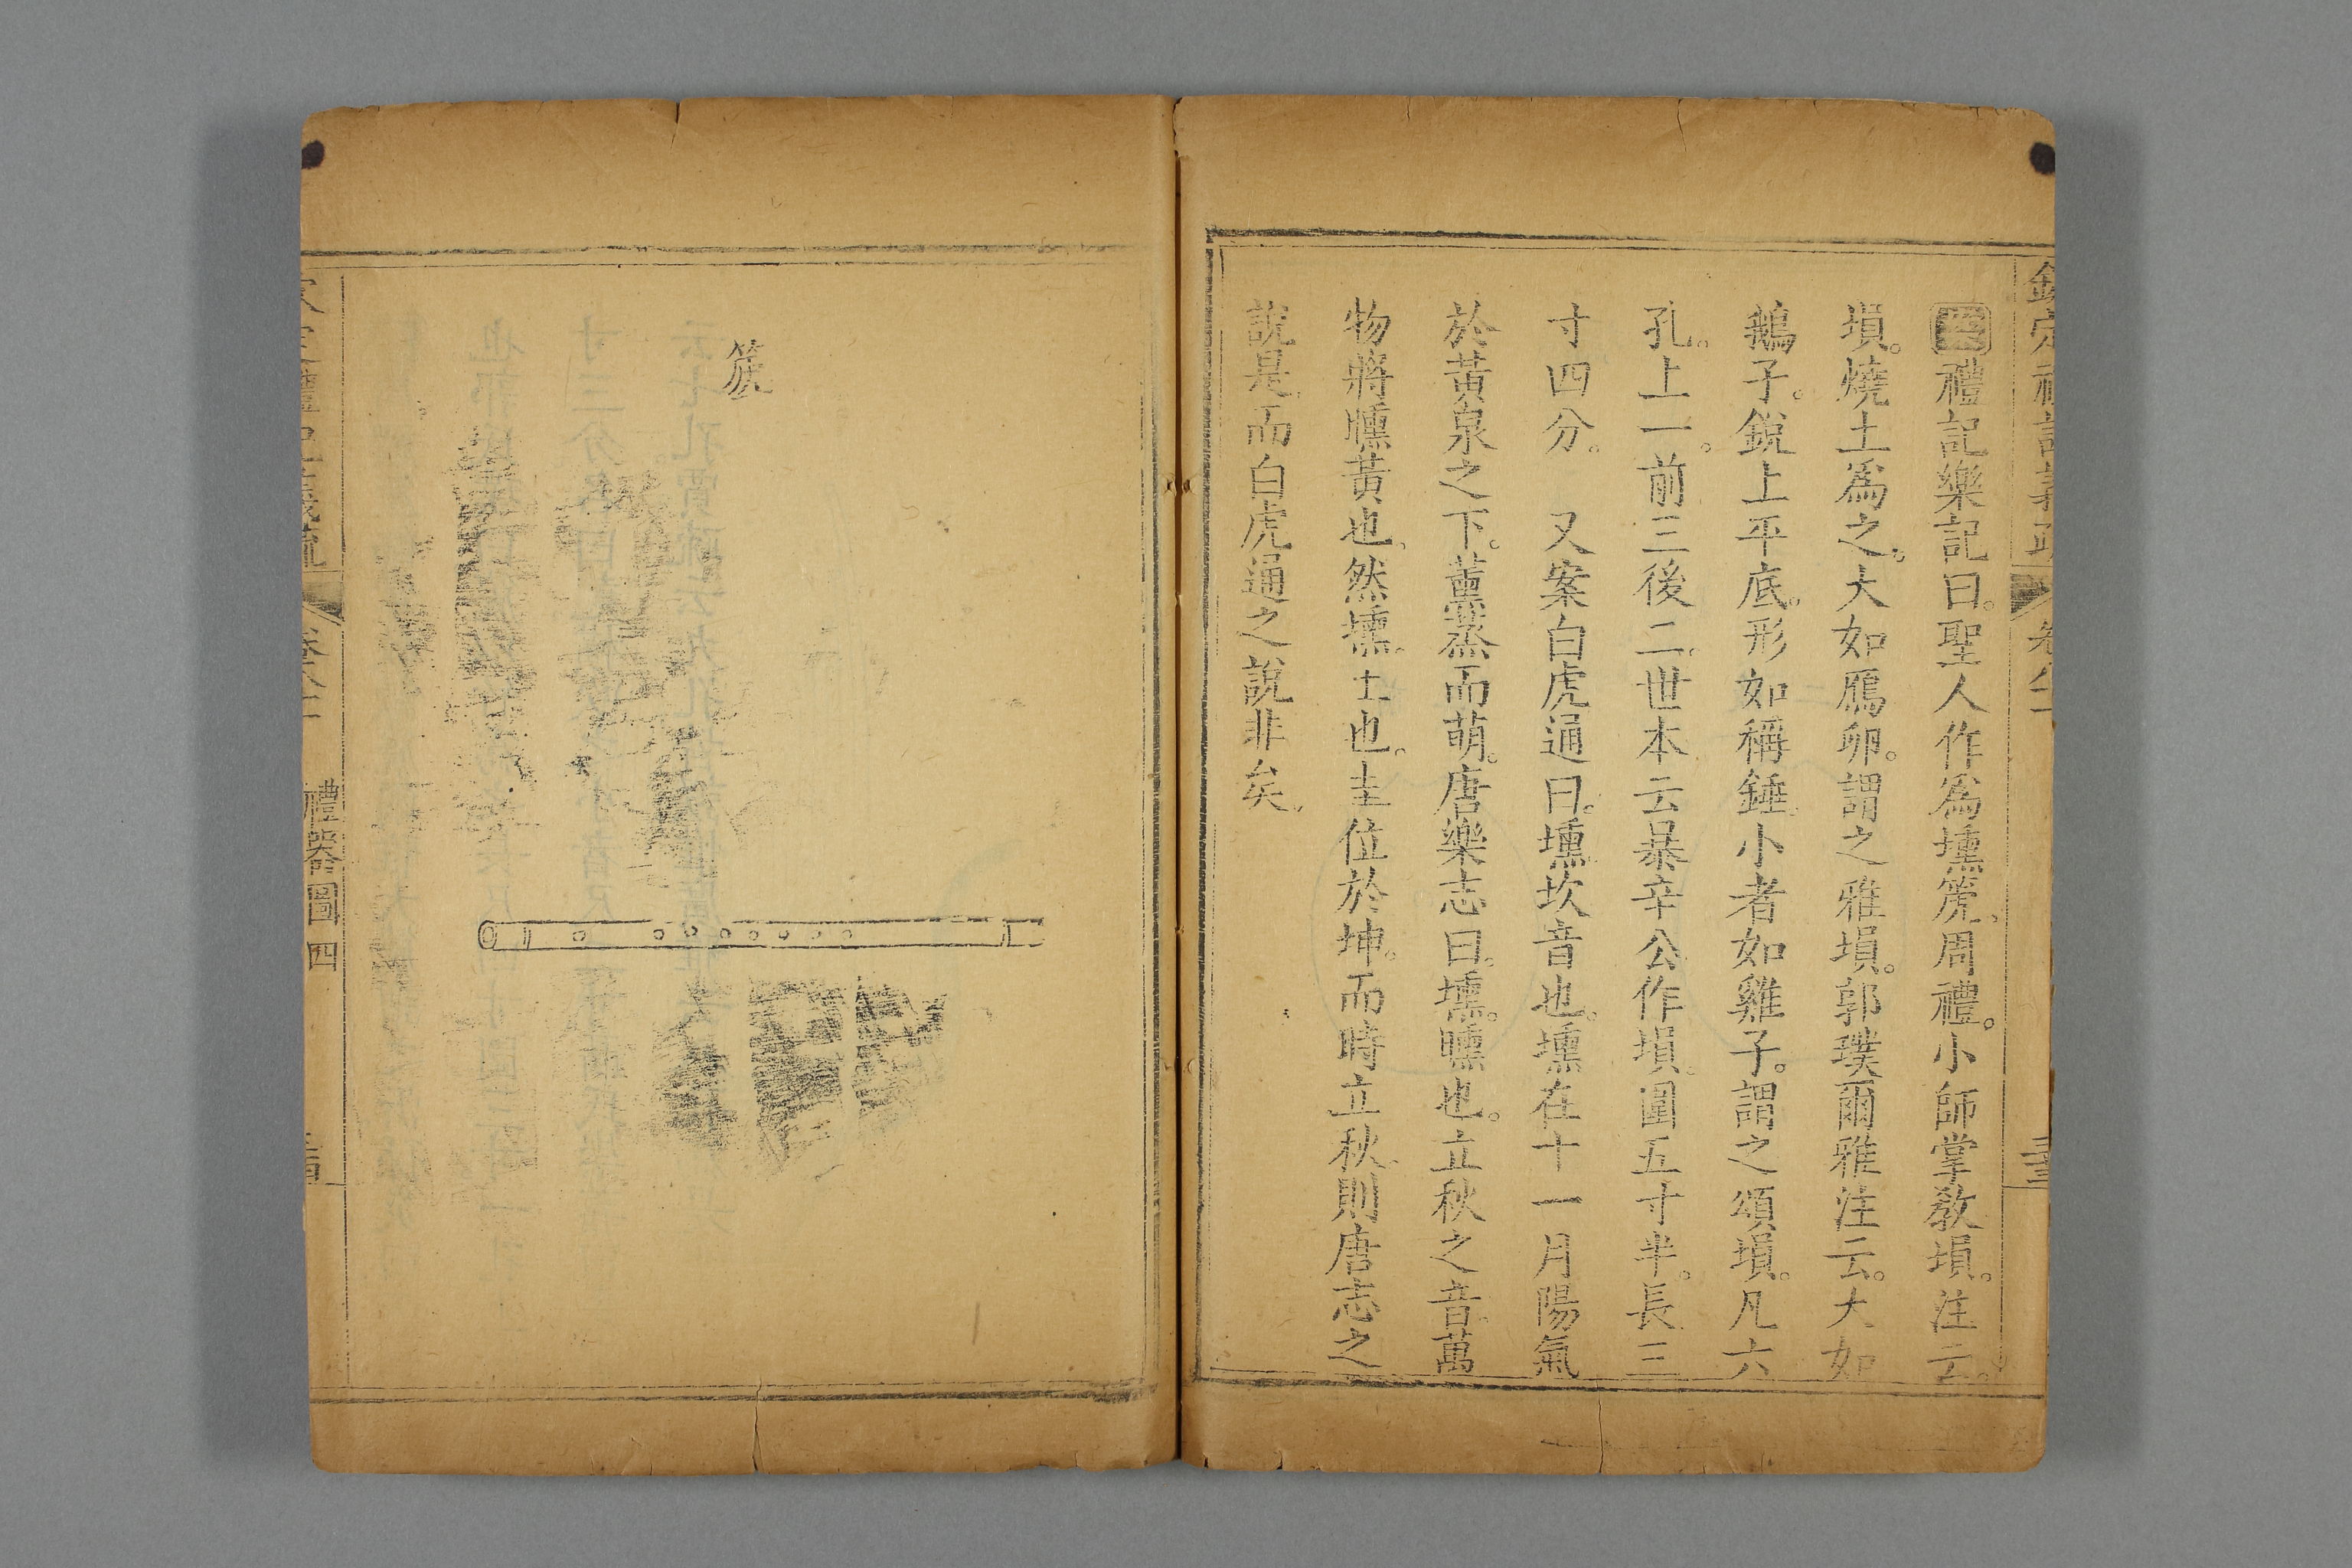 禮記樂記曰。聖人作爲壎箎。周禮。小師掌敎塤。注云。
塤。燒土爲之。大如鴈卵。謂之雅塤。郭璞爾雅注云。大如
鵝子。銳上平底。形如稱錘。小者如雞子。謂之頌塤。凡六
孔。上一。前三後二。世本云暴辛公作塤。圍五寸半。長三
寸四分。　又案白虎通曰。壎坎音也。壎在十一月陽氣
於黃泉之下。薰蒸而萌。唐樂志曰。壎。曛也。立秋之音。萬
物將曛黃也。然壎。土也。圭位於坤。而時立秋。則唐志之
說是。而白虎通之說非矣。
箎
禮器圖四